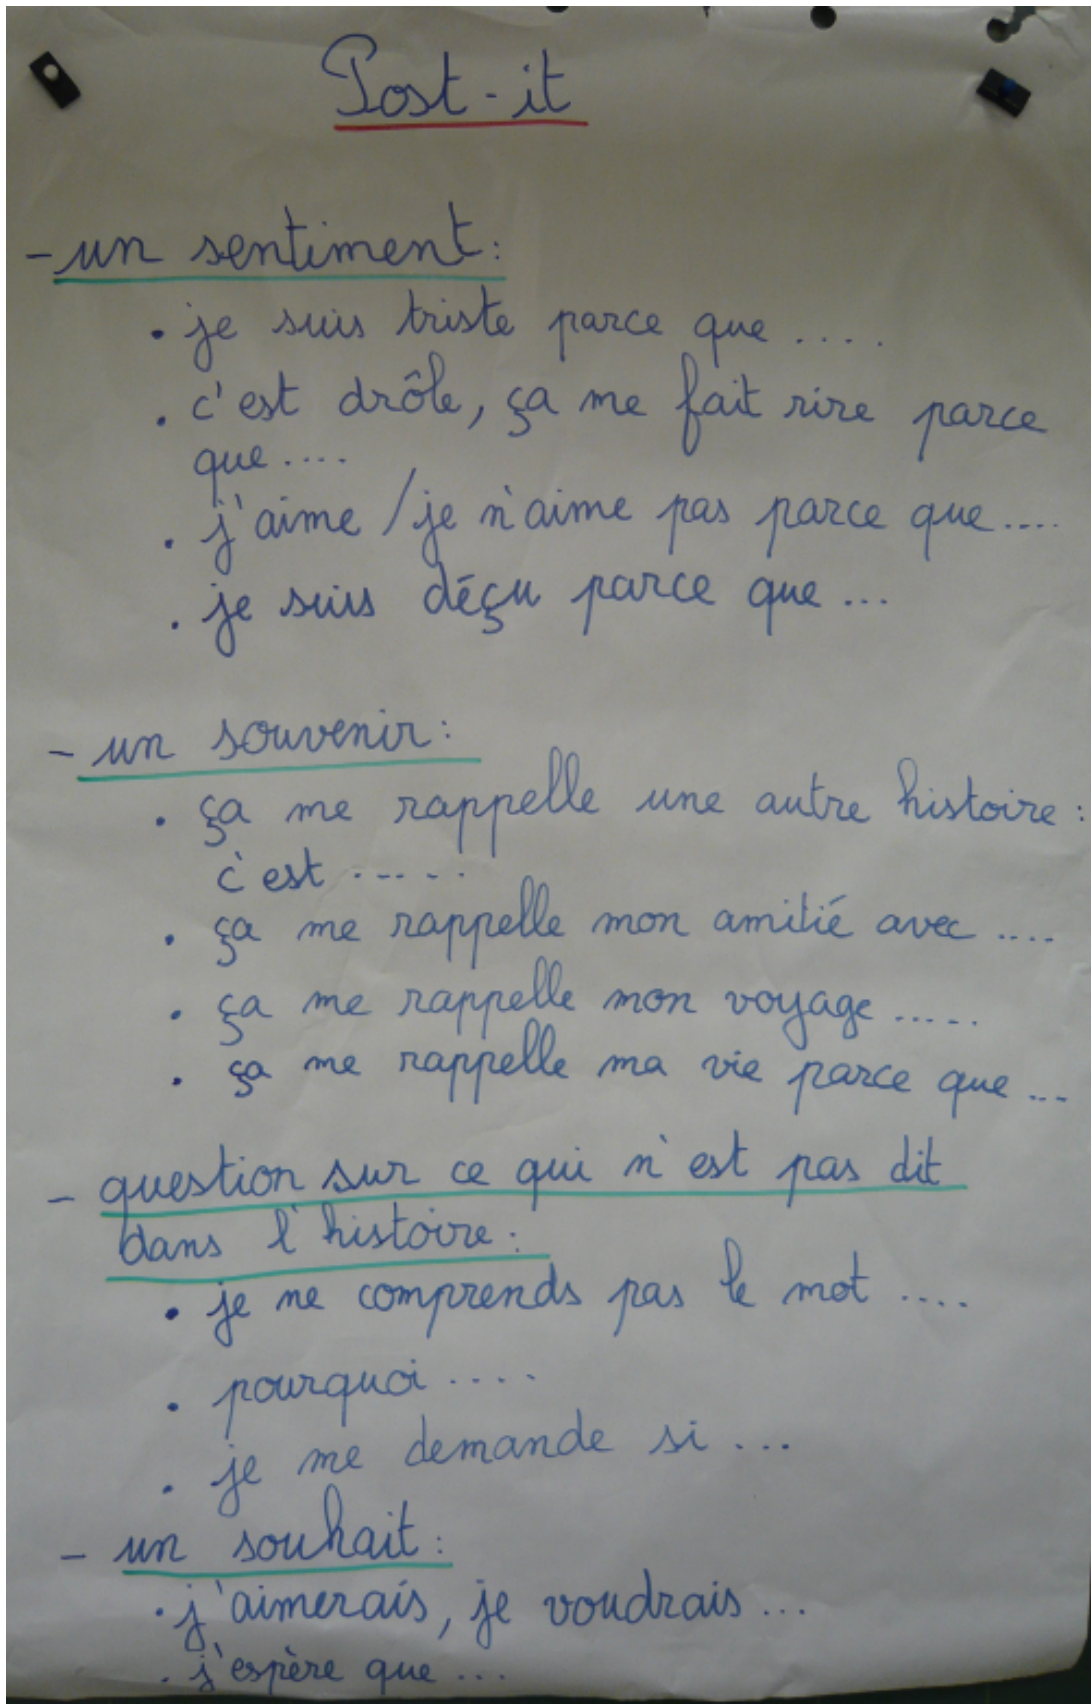 Post-it
- un sentiment:
. je suis triste parce que ....
. c'est drôle, ça me fait rire parce
que ....
. j'aime / je n'aime pas parce que ....
. je suis déçu parce que ...
- un souvenir:
. ça me rappelle une autre histoire:
c'est .....
. ça me rappelle mon amitié avec ....
. ça me rappelle mon voyage .....
. ça me rappelle ma vie parce que ...
- question sur ce qui n'est pas dit
dans l'histoire:
. je ne comprends pas le mot ....
. pourquoi ....
. je me demande si ...
- un souhait:
. j'aimerais, je voudrais ...
. j'espère que ...